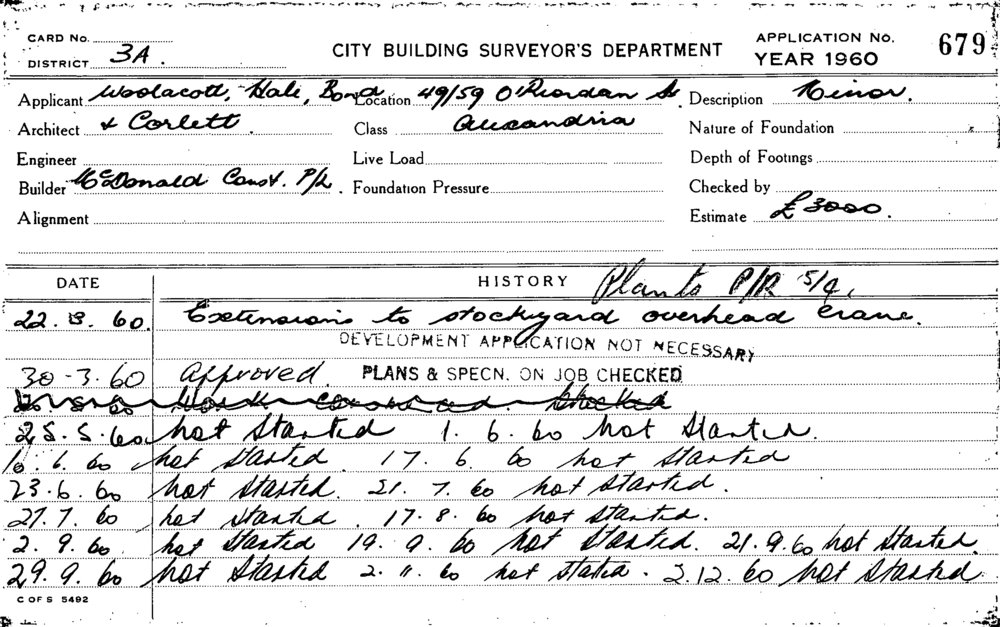 CARD No.
DISTRICT 3A.
CITY BUILDING SURVEYOR'S DEPARTMENT
APPLICATION No. 679
YEAR 1960
Applicant Woolacott, Hale, Bond Location 49/59 O'Riordan St Description Minor.
Architect & Corlett Class Alexandria Nature of Foundation
Engineer Live Load Depth of Footings
Builder McDonald Const. P/L. Foundation Pressure Checked by
Alignment Estimate £3000.
DATE HISTORY Plants P/R 5/9.
22.3.60. Extensions to stockyard overhead crane.
DEVELOPMENT APPLICATION NOT NECESSARY
30-3.60 Approved. PLANS & SPECN. ON JOB CHECKED
Work Checked
25.5.60 not started 1.6.60 not started.
10.6.60 not started. 17.6.60 not started
23.6.60 not started. 21.7.60 not started.
27.7.60 not started. 17.8.60 not started.
2.9.60 not started 19.9.60 not started. 21.9.60 not started.
29.9.60 not started 2.11.60 not stated. 2.12.60 not started.
C OF S 5492